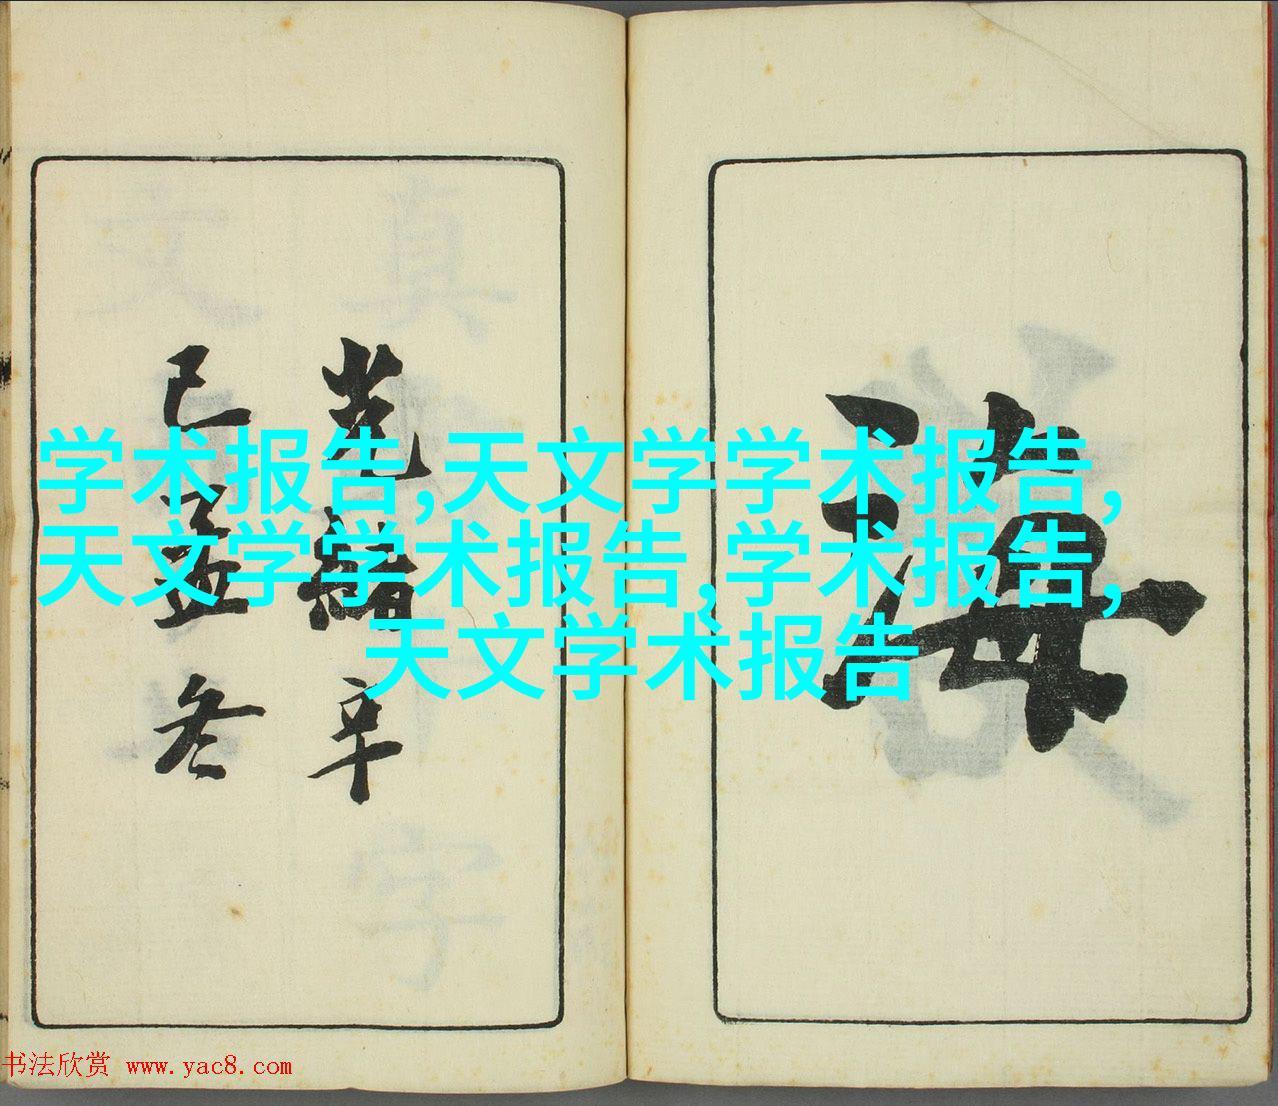 海
光緒辛
巳孟冬
学术报告,天文学学术报告,
天文学学术报告,学术报告,
天文学术报告
书法欣赏 www.yac8.com